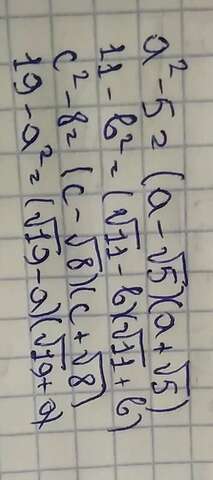 a² - 5 = (a - √5)(a + √5)
11 - b² = (√11 - b)(√11 + b)
c² - 8 = (c - √8)(c + √8)
19 - a² = (√19 - a)(√19 + a)